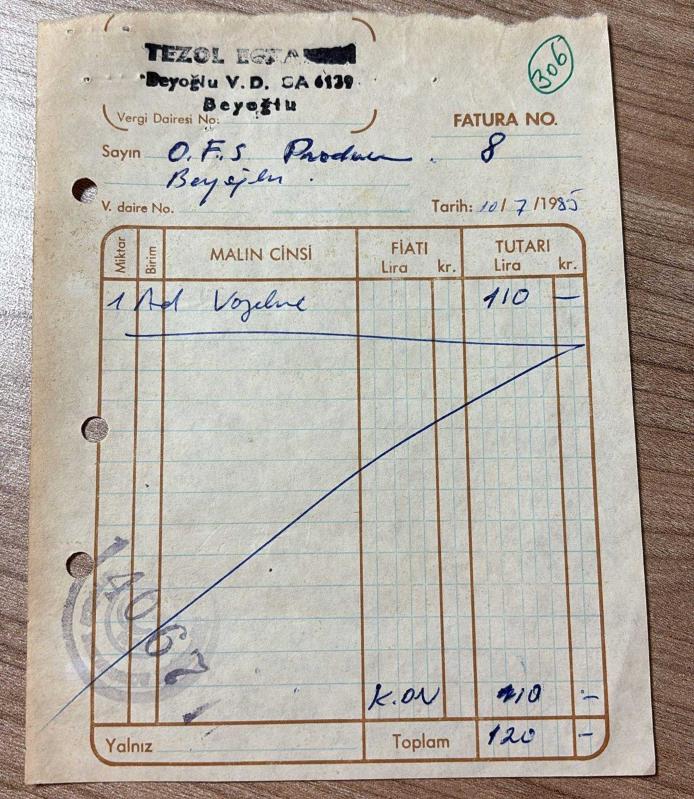 306
TEZOL
Beyoğlu V. D. CA 6139
Beyoğlu
Vergi Dairesi No:
FATURA NO.
8
Sayın O.F.S
Beyoğlu.
V. daire No.
Tarih: 10/7/1985
Miktar Birim MALIN CİNSİ FİATI Lira kr. TUTARI Lira kr.
1 Ad 110 —
K.DV 10 —
Yalnız Toplam 120 —